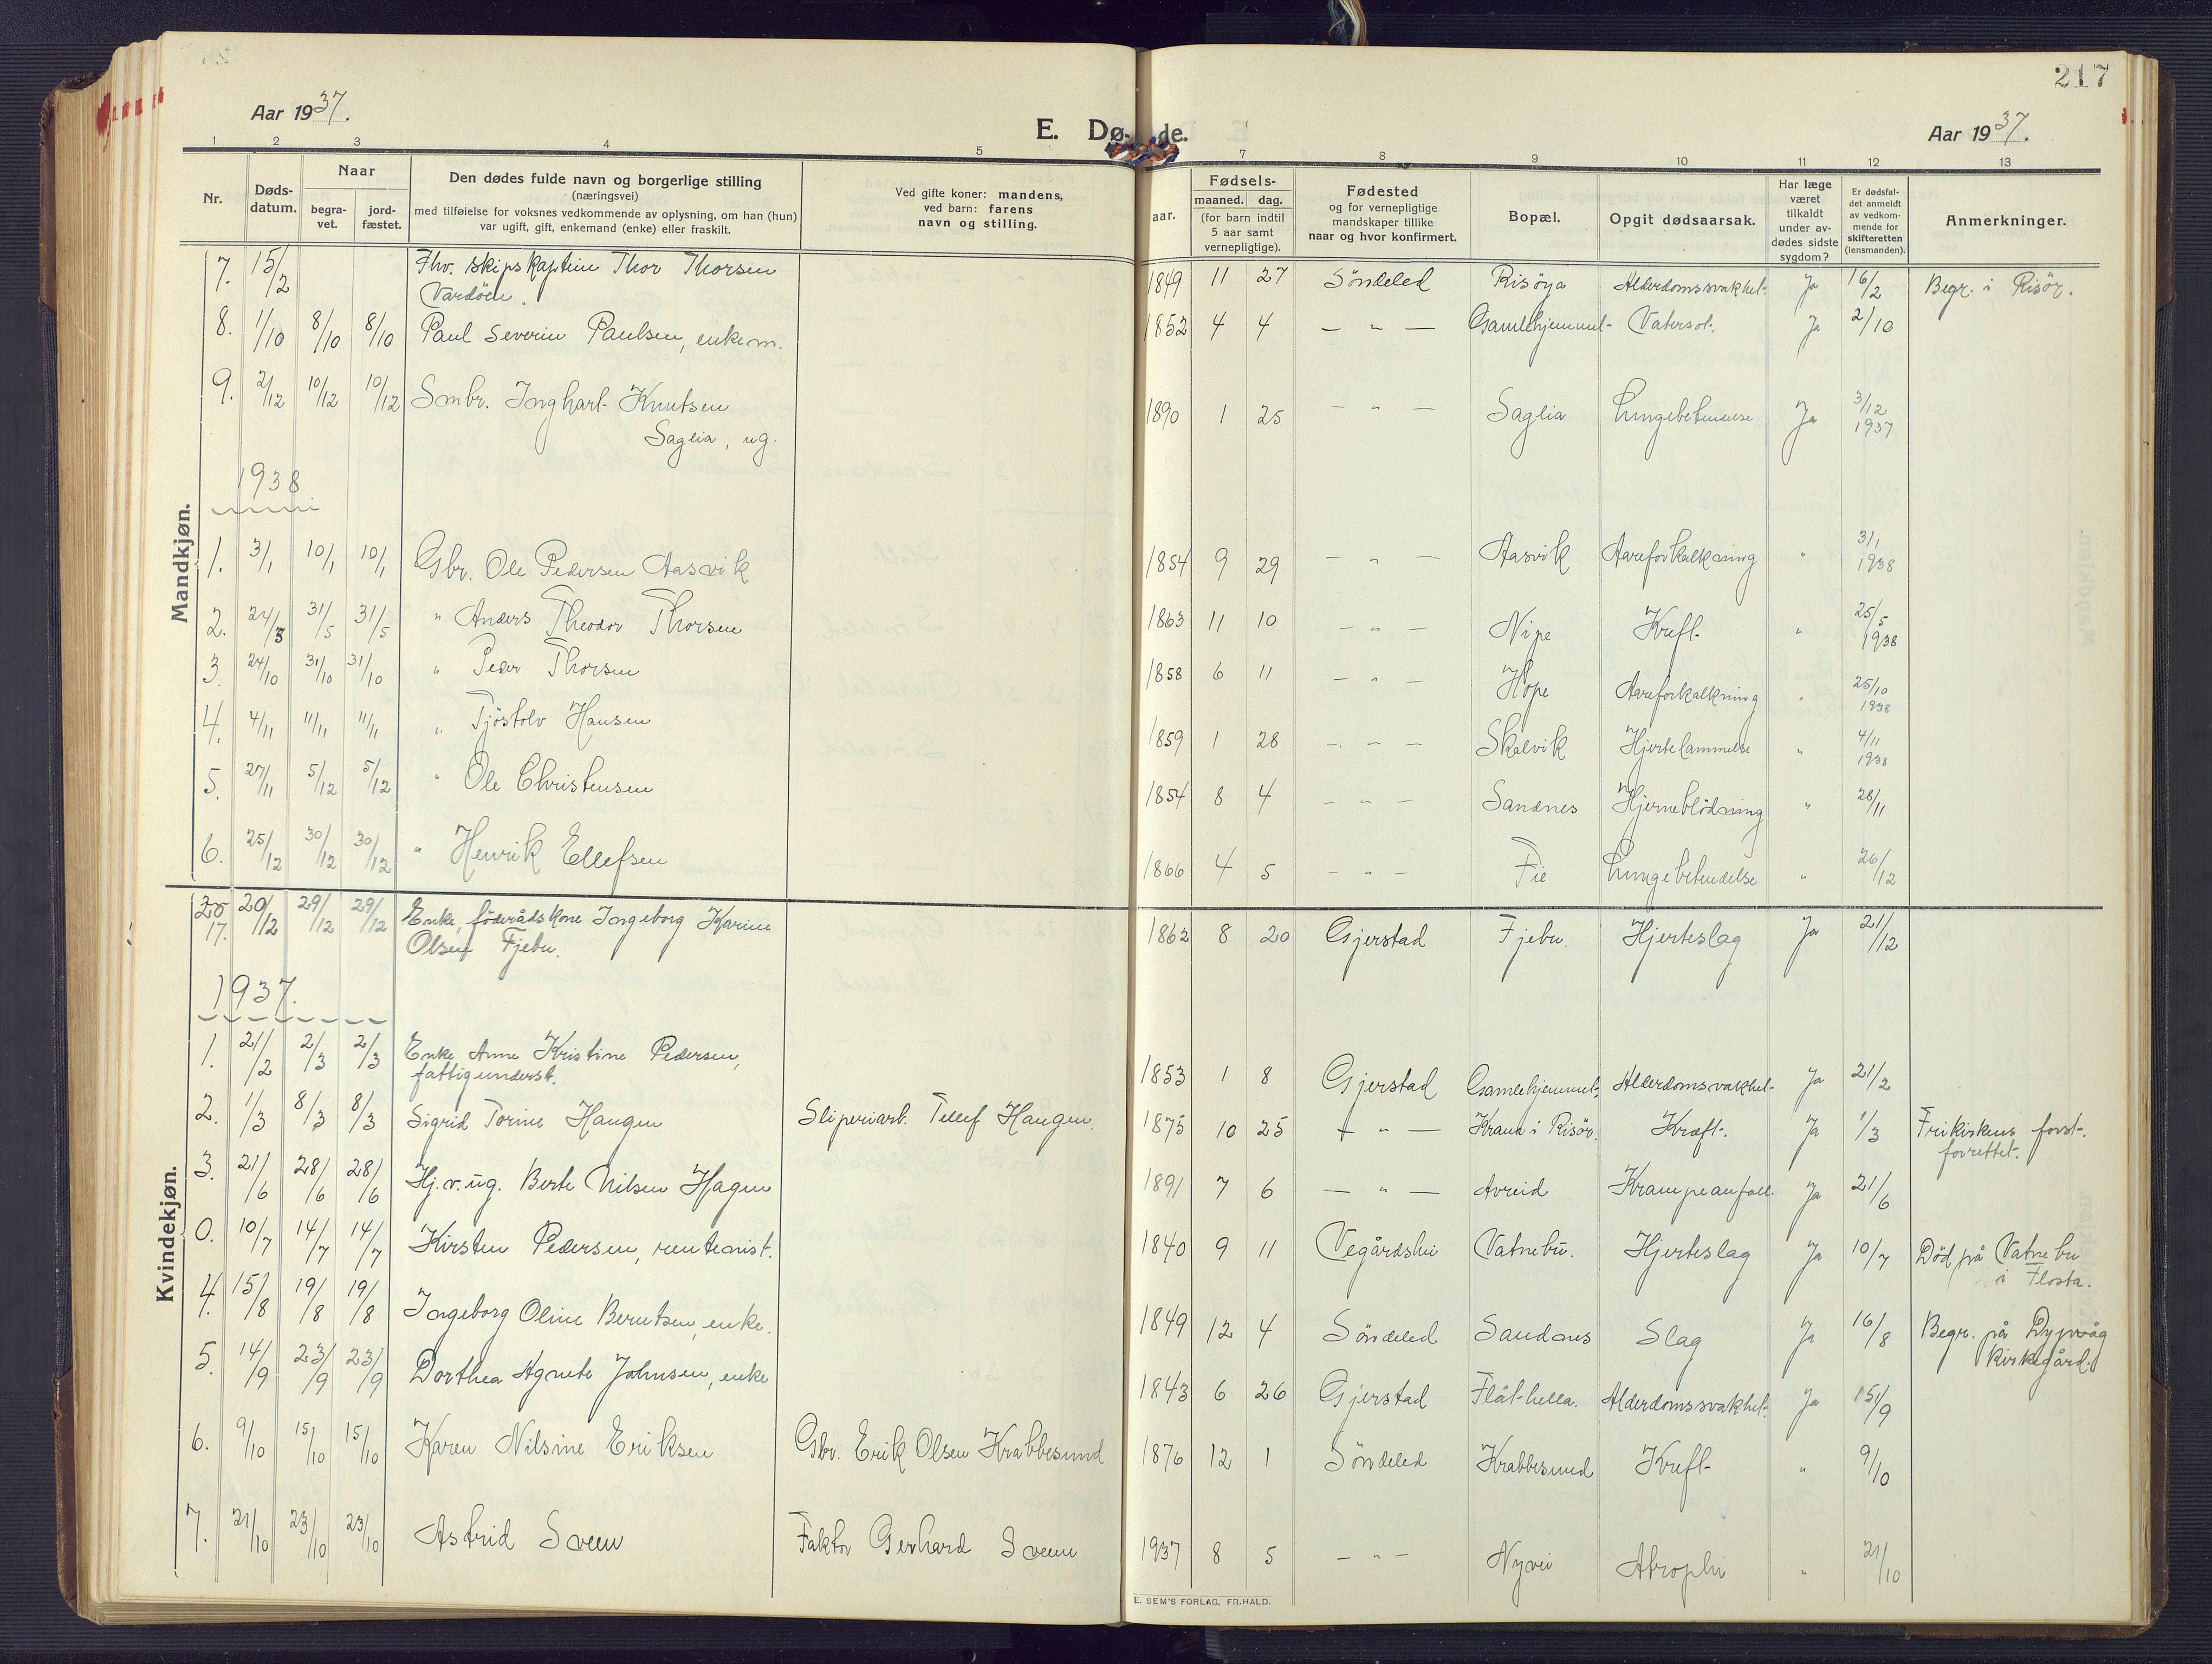 217
Aar 1937.
E. Dø- de.
Aar 1937.
1 2 3 4 5 7 8 9 10 11 12 13
Nr.
Døds-
datum.
Naar
begra-
vet.
jord-
fæstet.
Den dødes fulde navn og borgerlige stilling
(næringsvei)
med tilføielse for voksnes vedkommende av oplysning, om han (hun)
var ugift, gift, enkemand (enke) eller fraskilt.
Ved gifte koner: mandens,
ved barn: farens
navn og stilling.
Fødsels-
aar. maaned. dag.
(for barn indtil
5 aar samt
vernepligtige).
Fødested
og for vernepligtige
mandskaper tillike
naar og hvor konfirmert.
Bopæl.
Opgit dødsaarsak.
Har læge
været
tilkaldt
under av-
dødes sidste
sygdom?
Er dødsfal-
det anmeldt
av vedkom-
mende for
skifteretten
(lensmanden).
Anmerkninger.
Mandkjøn.
7. 15/2 Fhv. skipskaptein Thor Thorsen 1849 11 27 Søndeled Risøya Alderdomssvakhet. Ja 16/2 Begr. i Risør.
Vardöen.
8. 1/10 8/10 8/10 Paul Severin Paulsen, enkem. 1852 4 4 — " — Gamlehjemmet Vatersot. Ja 2/10
9. 2/12 10/12 10/12 Smbr. Inghart Knutsen 1890 1 25 — " — Saglia Lungebetendelse Ja 3/12 1937
Saglia, ug.
1938
1. 3/1 10/1 10/1 Gbr. Ole Pedersen Aasvik 1854 9 29 — " — Aasvik Aareforkalkning " 3/1 1938
2. 24/3 31/5 31/5 " Anders Theodor Thorsen 1863 11 10 — " — Nipe Kreft " 25/5 1938
3. 24/10 31/10 31/10 " Peder Thorsen 1858 6 11 — " — Hope Aareforkalkning " 25/10 1938
4. 4/11 11/11 11/11 " Tjöstolv Hansen 1859 1 28 — " — Skalvik Hjertelammelse " 4/11 1938
5. 27/11 5/12 5/12 " Ole Christensen 1854 8 4 — " — Sandnes Hjerneblödning " 28/11
6. 25/12 30/12 30/12 " Henrik Ellefsen 1866 4 5 — " — Fie Lungebetendelse " 26/12
Kvindekjøn.
17. 20/12 29/12 29/12 Enke, föderådskone Ingeborg Karine 1862 8 20 Gjerstad Fjebu. Hjerteslag Ja 21/12
Olsen Fjebu.
1937.
1. 21/2 2/3 2/3 Enke Anne Kristine Pedersen, 1853 1 8 Gjerstad Gamlehjemmet Alderdomsvakhet Ja 21/2
fattigunderst.
2. 1/3 8/3 8/3 Sigrid Torine Haugen Sliperiarb. Tellef Haugen. 1875 10 25 — " — Krana i Risør. Kræft. Ja 1/3 Frikirkens forst.
forrettet.
3. 21/6 28/6 28/6 Hj.v. ug. Berte Nilsen Hagen 1891 7 6 — " — Avreid Krampeanfall. Ja 21/6
0. 10/7 14/7 14/7 Kirsten Pedersen, rentenist. 1840 9 11 Vegårdshei Vatnebu. Hjerteslag Ja 10/7 Död på Vatnebu
i Flosta.
4. 15/8 19/8 19/8 Ingeborg Oline Berntsen, enke. 1849 12 4 Söndeled Sandnes Slag Ja 16/8 Begr. på Dypvåg
kirkegård.
5. 14/9 23/9 23/9 Dorthea Agnete Johnsen, enke 1843 6 26 Gjerstad Flåt-hella. Alderdomssvakhet. Ja 15/9
6. 9/10 15/10 15/10 Karen Nilsine Eriksen Gbr. Erik Olsen Krabbesund 1876 12 1 Söndeled Krabbesund Kreft " 9/10
7. 21/10 23/10 23/10 Astrid Sveen Faktor Gerhard Sveen 1937 8 5 — " — Nyvei Atrophi " 21/10
E. SEM'S FORLAG, FR.HALD.